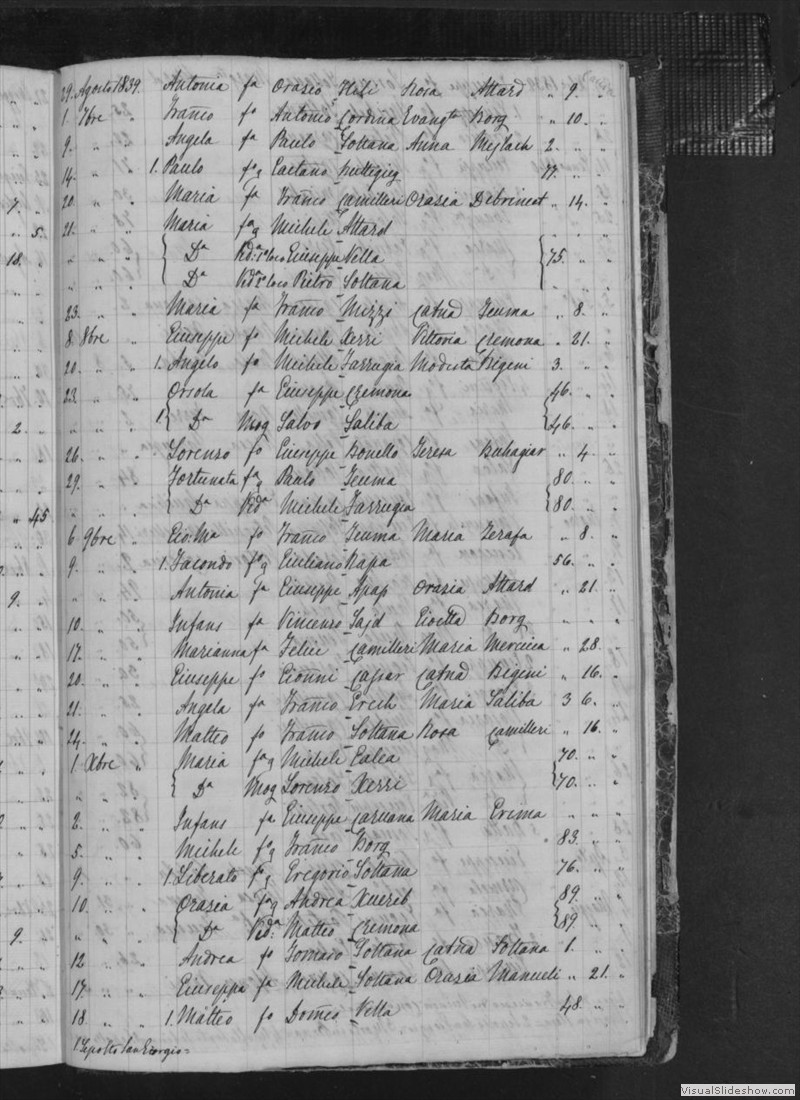 29. Agosto 1839. Antonia fa Orazio Xili Rosa Attard " 9. "
1. 7bre " Franco fo Antonio Cordina Evangta Borg " 10. "
9. " " Angela fa Paulo Soltana Anna Mejlach 2. " "
14. " " 1. Paulo fog Gaetano Buttigieg 77. " "
20. " " Maria fa Franco Camilleri Orazia Debrincat " 14. "
21. " " Maria fag Michele Attard
" " " Da Vida Giuseppe Vella 75. " "
Da Vida Pietro Soltana
23. " " Maria fa Franco Mizzi Catna Zeuma " 8. "
8. 8bre " Giuseppe fo Michele Xerri Vittoria Cremona " 21. "
20. " " 1. Angelo fo Michele Farrugia Modesta Bigeni 3. " "
23. " " Orsola fa Giuseppe Cremona 46. " "
" " " 1 Da Mog Salvo Saliba 46. " "
26. " " Lorenzo fo Giuseppe Bonello Teresa Buhagiar " 4. "
29. " " Fortunata fag Paulo Zeuma 80. " "
" " " Da Vida Michele Farrugia 80. " "
6 9bre " Gio: Ma fo Franco Zeuma Maria Zerafa " 8. "
9. " " 1. Facondo fog Giuliano Rapa 56. " "
" " " Antonia fa Giuseppe Apap Orazia Attard " 21. "
10. " " Infans fa Vincenzo Sajd Gioetta Borg " " "
17. " " Marianna fa Felice Camilleri Maria Mercieca " 28. "
20. " " Giuseppe fo Gionni Caspar Catna Bigeni " 16. "
21. " " Angela fa Franco Grech Maria Saliba 3 6. "
24. " " Matteo fo Franco Soltana Rosa Camilleri " 16. "
1. Xbre " Maria fag Michele Galea 70. " "
Da Mog Lorenzo Xerri 70. " "
2. " " Infans fa Giuseppe Caruana Maria Grima " " "
5. " " Michele fog Franco Borg 83. " "
9. " " 1. Liberato fog Gregorio Soltana 76. " "
10. " " Orazia fag Andrea Xuereb 89. " "
" " " Da Vida Matteo Cremona 89. " "
12 " " Andrea fo Tomaso Soltana Catna Soltana 1. " "
17. " " Giuseppa fa Michele Soltana Grazia Manueli " 21. "
18. " " 1. Matteo fo Domco Vella 48. " "
1 Sepolto San Giorgio =
7. "
" 5.
18. "
2. "
" 45
9. "
9. "
VisualSlideshow.com